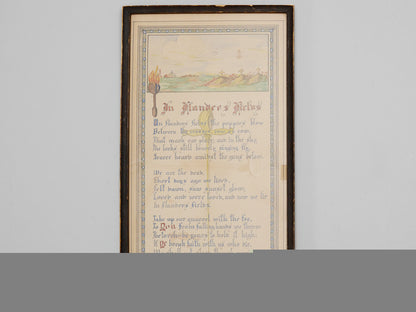 In Flanders Fields
In Flanders fields the poppies blow
Between the crosses, row
That mark our place; and in the sky
The larks still bravely singing fly
Scarce heard amidst the guns below.
We are the dead.
Short days ago we lived,
felt dawn, saw sunset glow,
Loved, and were loved, and now we lie
In Flanders fields.
Take up our quarrel with the foe,
To you from failing hands we throw
be yours to hold it high;
If ye break faith with us who die,